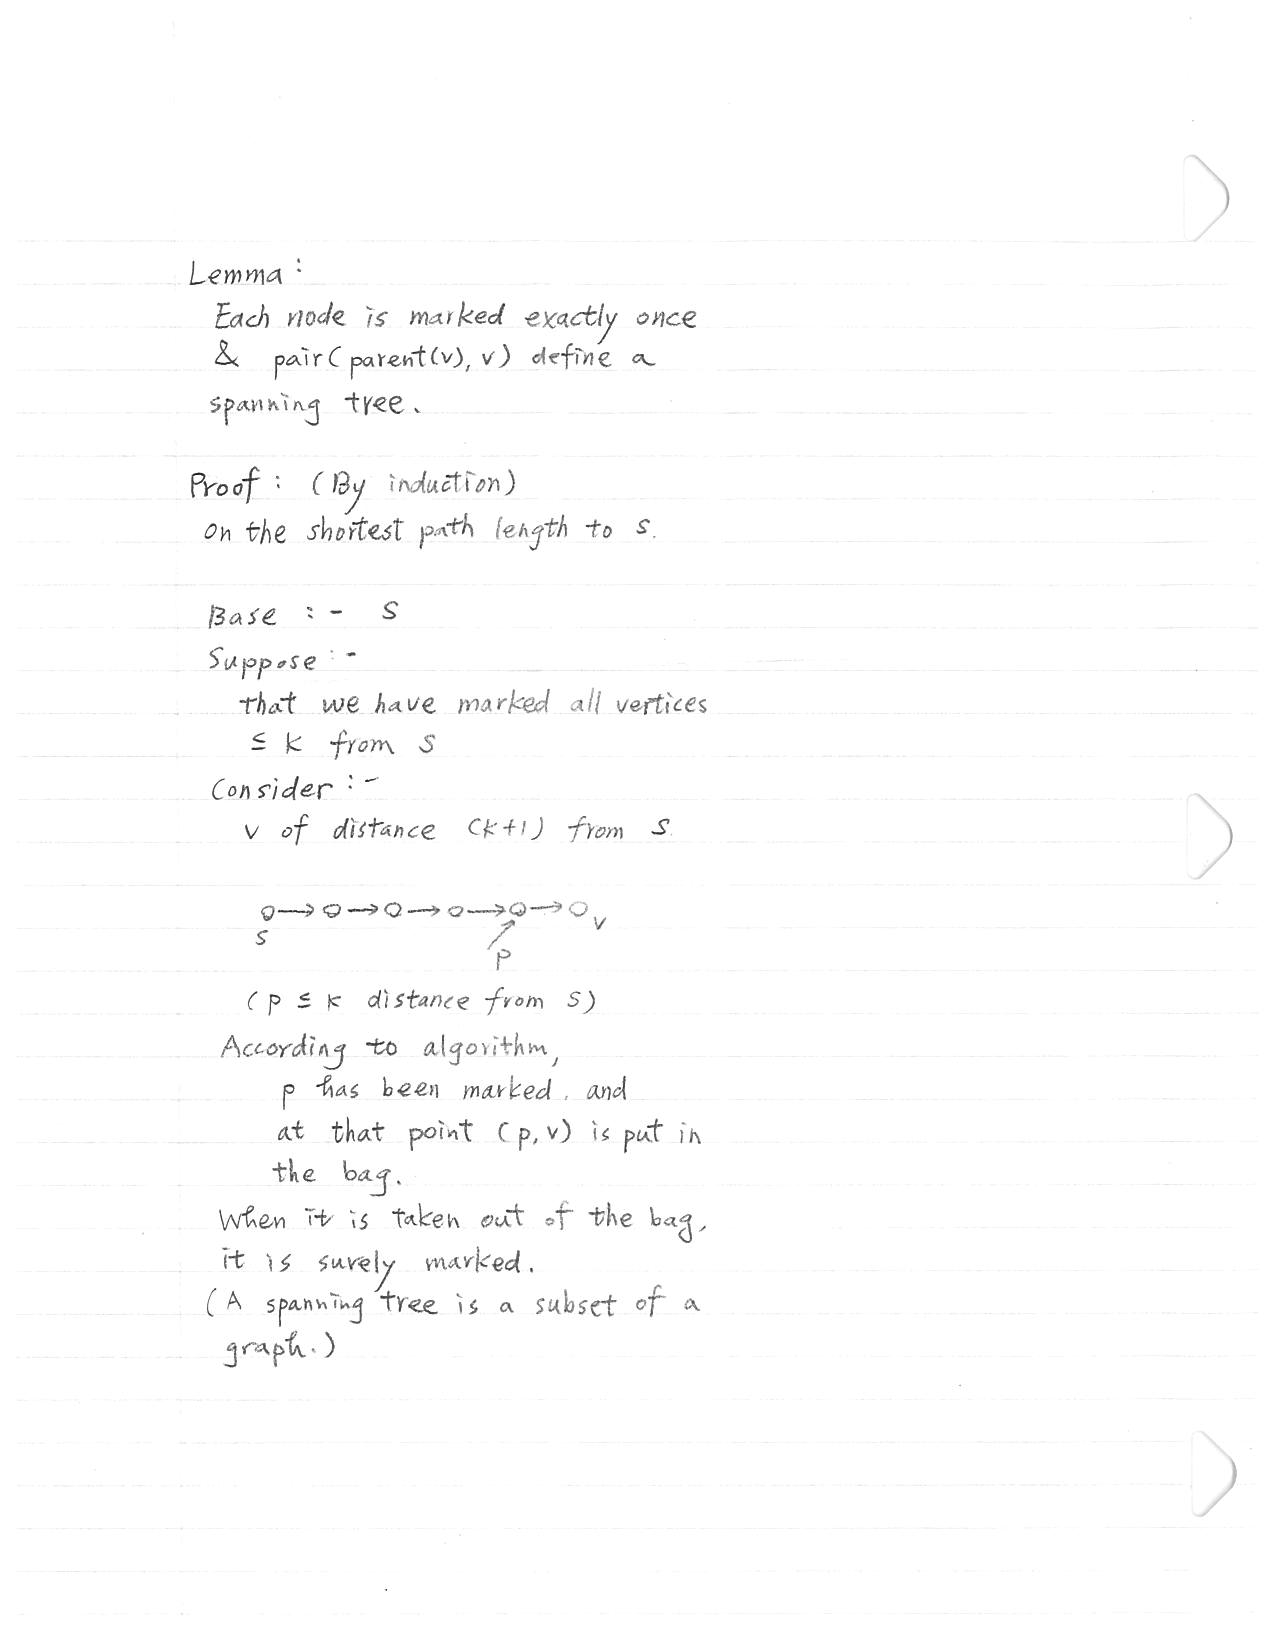 Lemma :
Each node is marked exactly once
& pair ( parent(v), v ) define a
spanning tree.
Proof : (By induction)
on the shortest path length to s.
Base : - S
Suppose : -
that we have marked all vertices
≤ k from s
Consider : -
v of distance (k+1) from s.
s
v
p
( p ≤ k distance from s)
According to algorithm,
p has been marked, and
at that point (p, v) is put in
the bag.
When it is taken out of the bag,
it is surely marked.
(A spanning tree is a subset of a
graph.)